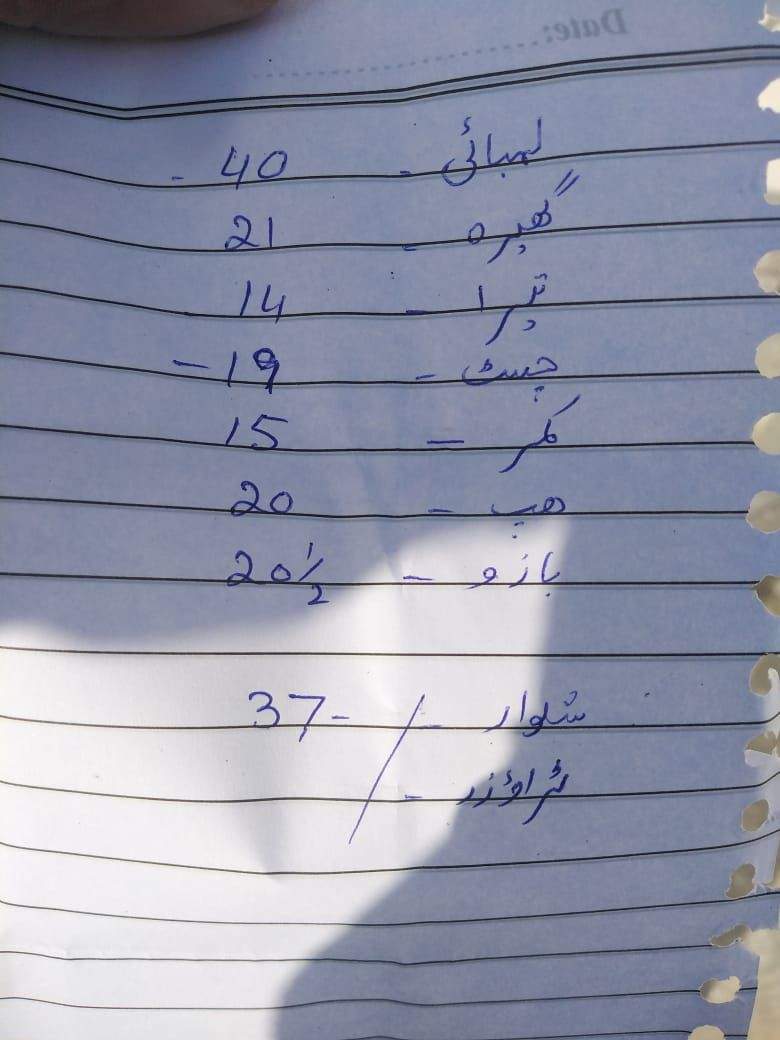 Date:
لمبائی - 40 -
گھیرہ - 21
تیرا - 14
چسٹ - 19 -
کمر - 15
ھپ - 20
بازو - 20 1/2
شلوار - / - 37
ٹراوئزر - /